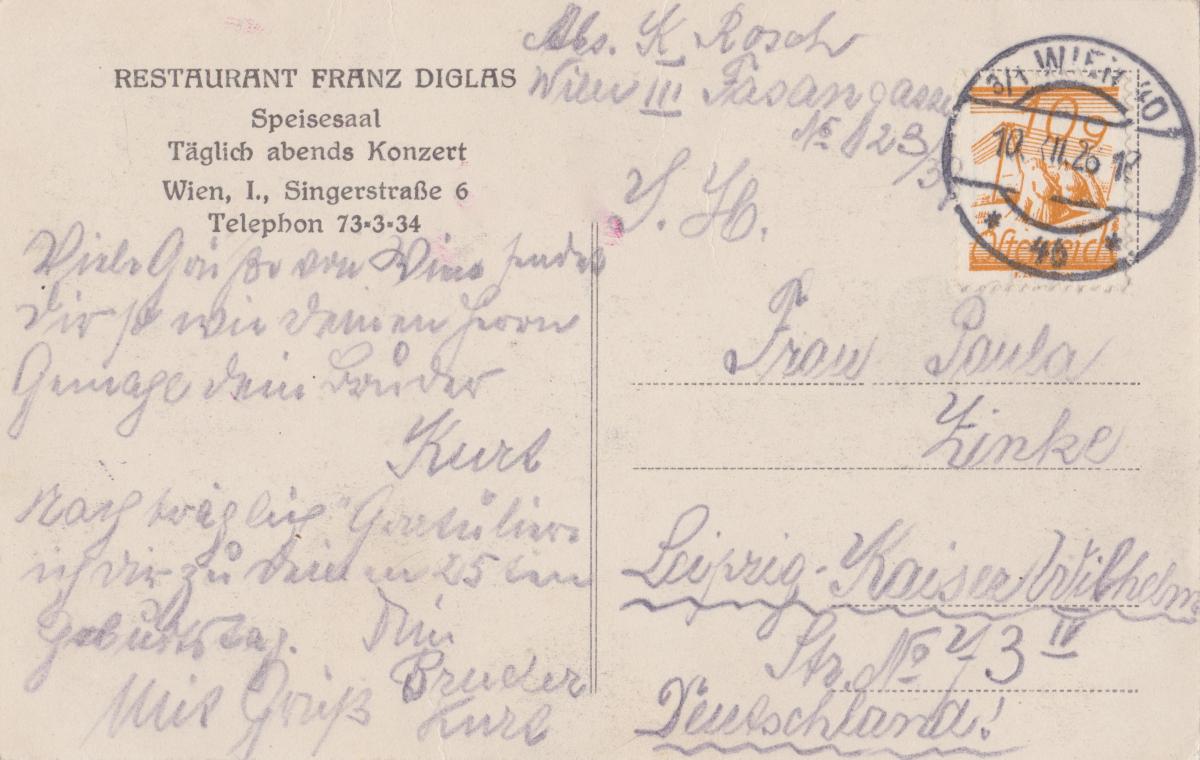 RESTAURANT FRANZ DIGLAS
Speisesaal
Täglich abends Konzert
Wien, I., Singerstraße 6
Telephon 73-3-34
Viele Grüße aus Wien sendet
Dir so wie deinem Herrn
Gemahl dein Bruder
Kurt
Nachträglich Gratuliere
ich dir zu deinem 25ten
Geburtstag. Dein
Bruder
Mit Gruß Kurt
Abs. K Rosch
Wien III Fasangasse
No 23/
S. H.
WIEN 40
10 26
* 4b *
10g
Österreich
Frau Paula
Zinke
Leipzig - Kaiser Wilhelm
Str. No 73 IV
Deutschland!